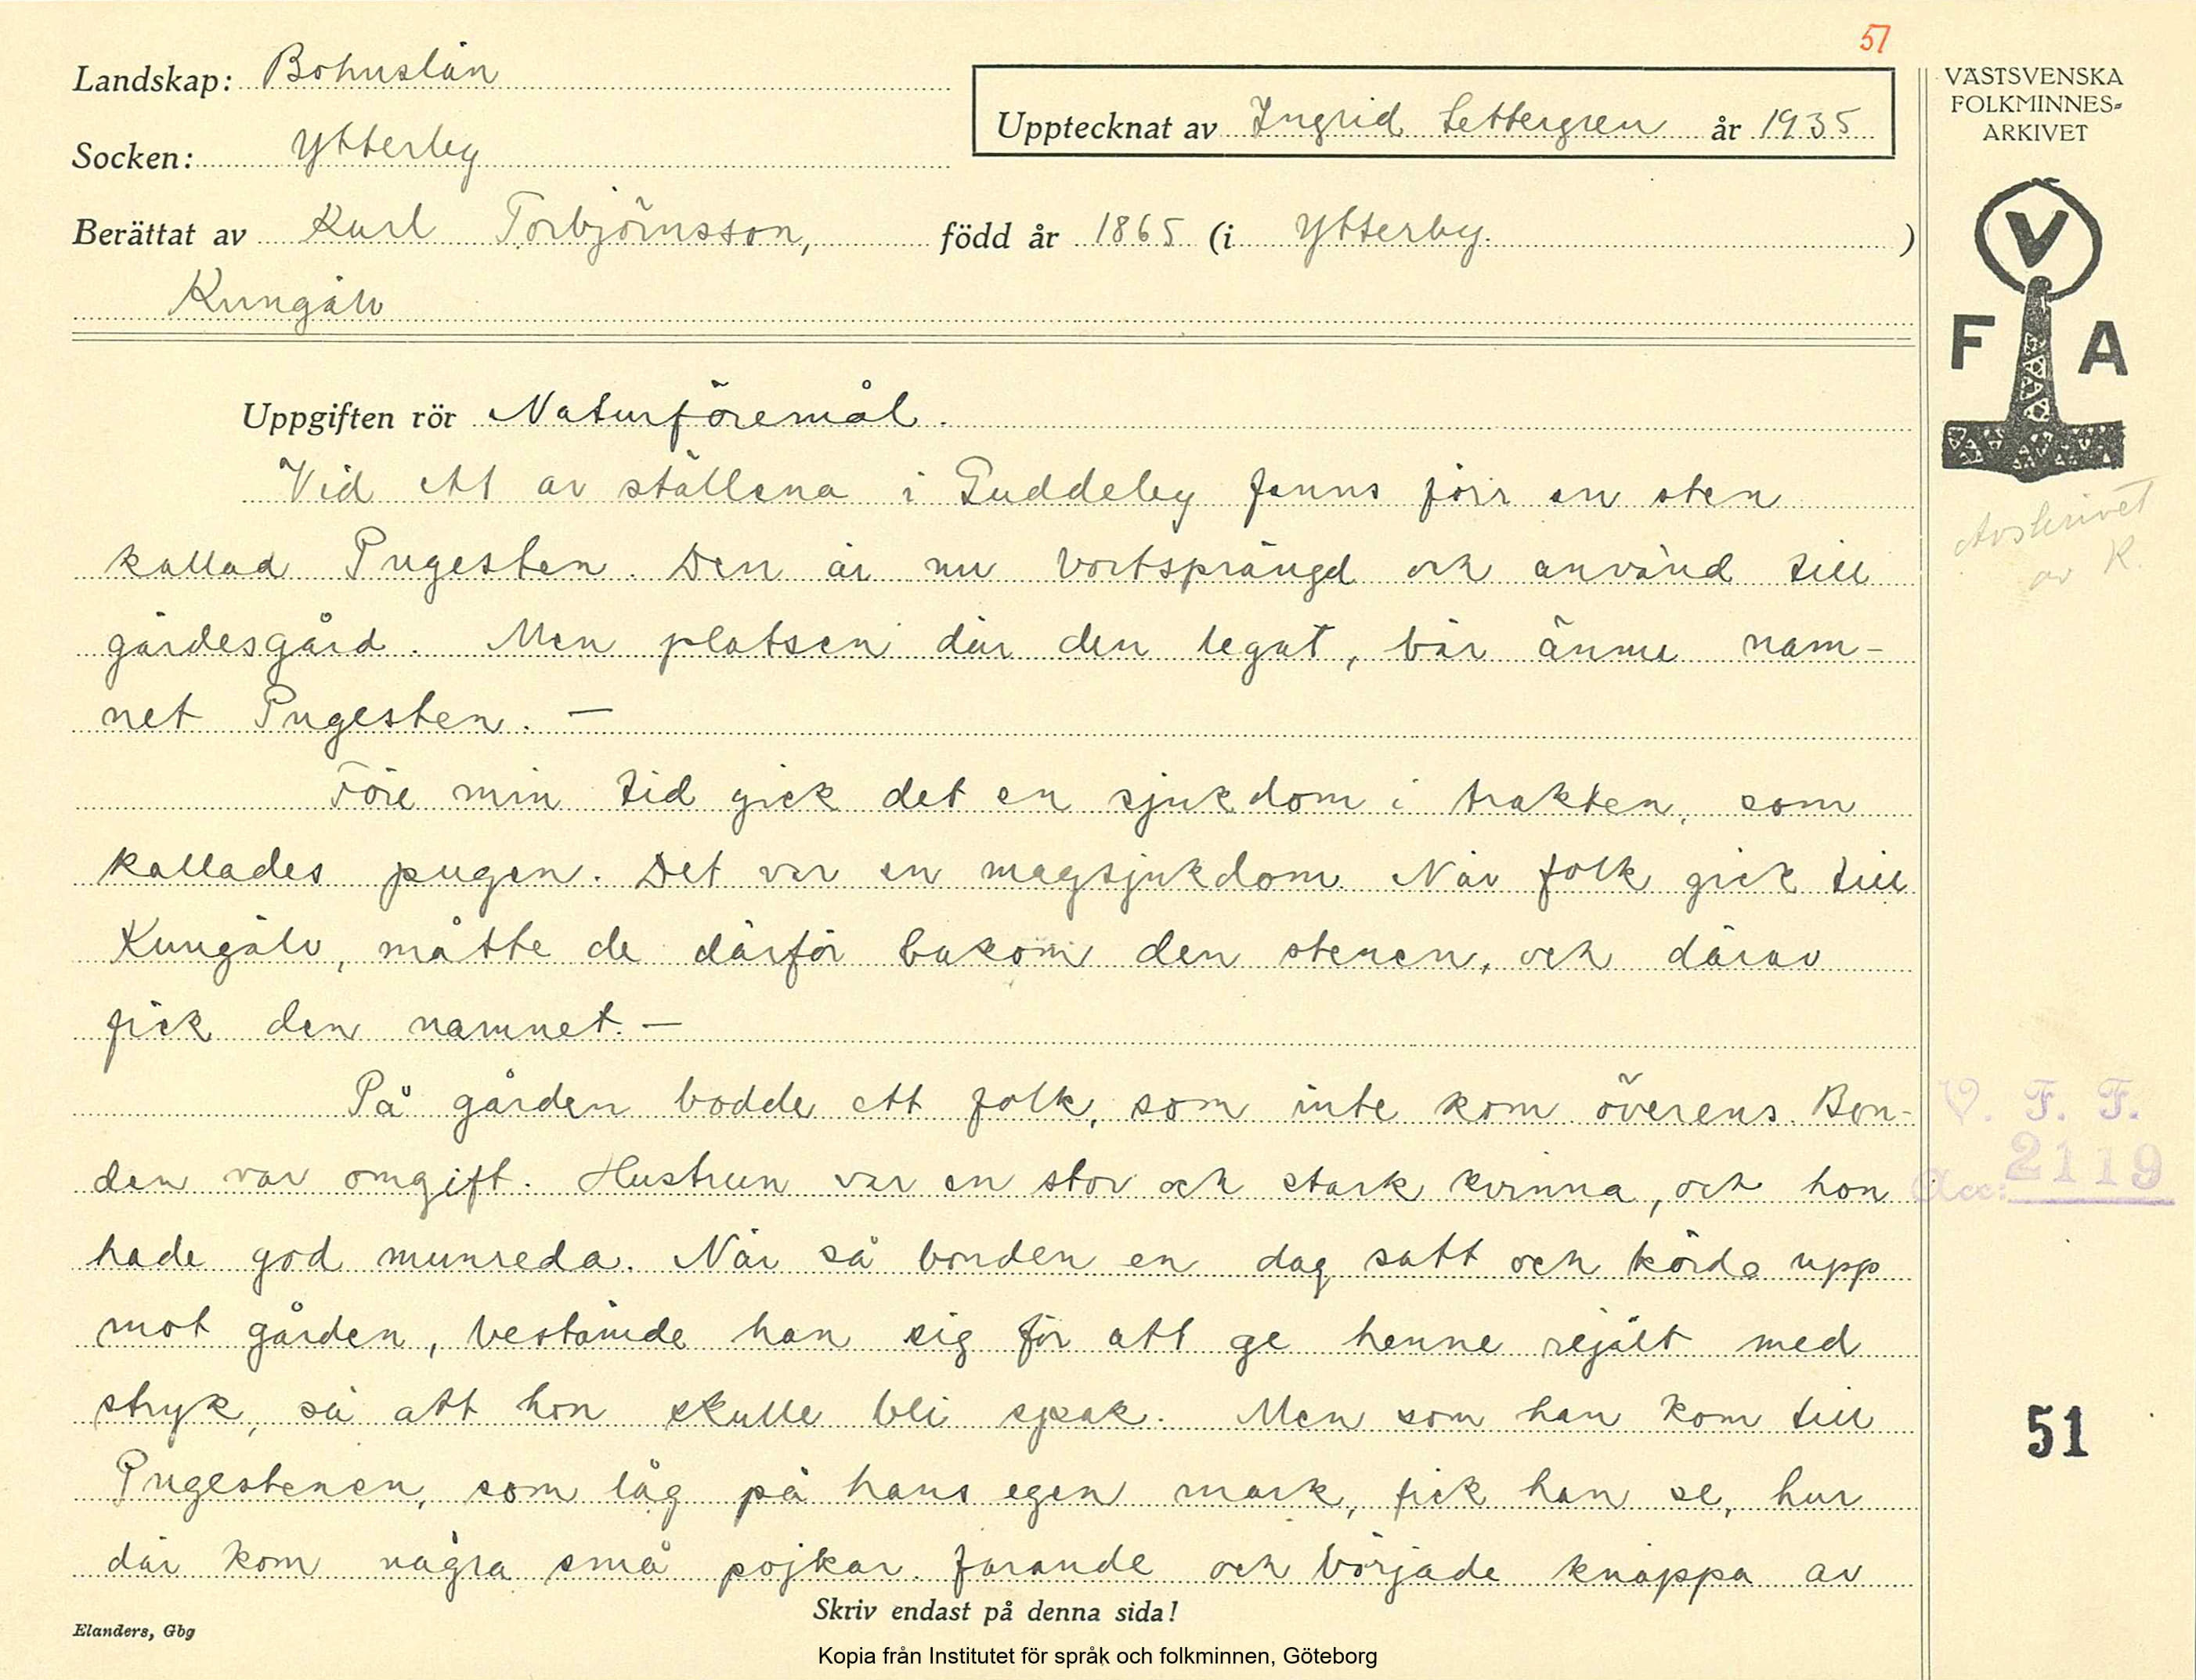 51
Landskap: Bohuslän
Socken: Ytterby
Upptecknat av Ingrid Settergren år 1935
Berättat av Karl Torbjörnsson, född år 1865 (i Ytterby. )
Kungälv
VÄSTSVENSKA
FOLKMINNES-
ARKIVET
V
F A
Avskrivet
av K.
Uppgiften rör Naturföremål.
Vid ett av ställena i Guddeby fanns förr en sten
kallad Pugesten. Den är nu bortsprängd och använd till
gärdesgård. Men platsen där den legat, bär ännu nam-
net Pugesten. —
Före min tid gick det en sjukdom i trakten, som
kallades pugen. Det var en magsjukdom. När folk gick till
Kungälv, måtte de därför bakom den stenen, och därav
fick den namnet. —
På gården bodde ett folk, som inte kom överens. Bon-
den var omgift. Hustrun var en stor och stark kvinna, och hon
hade god munreda. När så bonden en dag satt och körde upp
mot gården, bestämde han sig för att ge henne rejält med
stryk, så att hon skulle bli spak. Men som han kom till
Pugestenen, som låg på hans egen mark, fick han se, hur
där kom några små pojkar farande och började knäppa av
V. F. F.
Acc: 2119
51
Skriv endast på denna sida!
Elanders, Gbg
Kopia från Institutet för språk och folkminnen, Göteborg